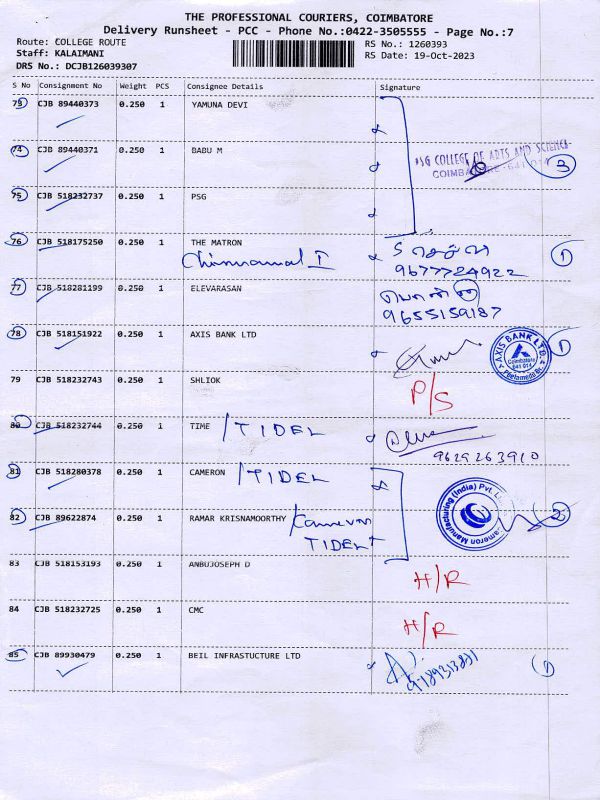 THE PROFESSIONAL COURIERS, COIMBATORE
Delivery Runsheet - PCC - Phone No.:0422-3505555 - Page No.:7
Route: COLLEGE ROUTE
RS No.: 1260393
Staff: KALAIMANI
RS Date: 19-Oct-2023
DRS No.: DCJB126039307
S No Consignment No Weight PCS Consignee Details Signature
73 CJB 89440373 0.250 1 YAMUNA DEVI
74 CJB 89440371 0.250 1 BABU M
PSG COLLEGE OF ARTS AND SCIENCE
COIMBATORE - 641 014
3
75 CJB 518232737 0.250 1 PSG
76 CJB 518175250 0.250 1 THE MATRON
1
9677724922
77 CJB 518281199 0.250 1 ELEVARASAN
9655159187
78 CJB 518151922 0.250 1 AXIS BANK LTD
AXIS BANK LTD.
Coimbatore
641 014
Peelamedu Br.
1
79 CJB 518232743 0.250 1 SHLIOK P/S
80 CJB 518232744 0.250 1 TIME /TIDEL
9629263910
81 CJB 518280378 0.250 1 CAMERON /TIDEL
82 CJB 89622874 0.250 1 RAMAR KRISNAMOORTHY /Cameron
TIDEL
Cameron Manufacturing (India) Pvt. L
2
83 CJB 518153193 0.250 1 ANBUJOSEPH D H/R
84 CJB 518232725 0.250 1 CMC H/R
85 CJB 89930479 0.250 1 BEIL INFRASTUCTURE LTD
1